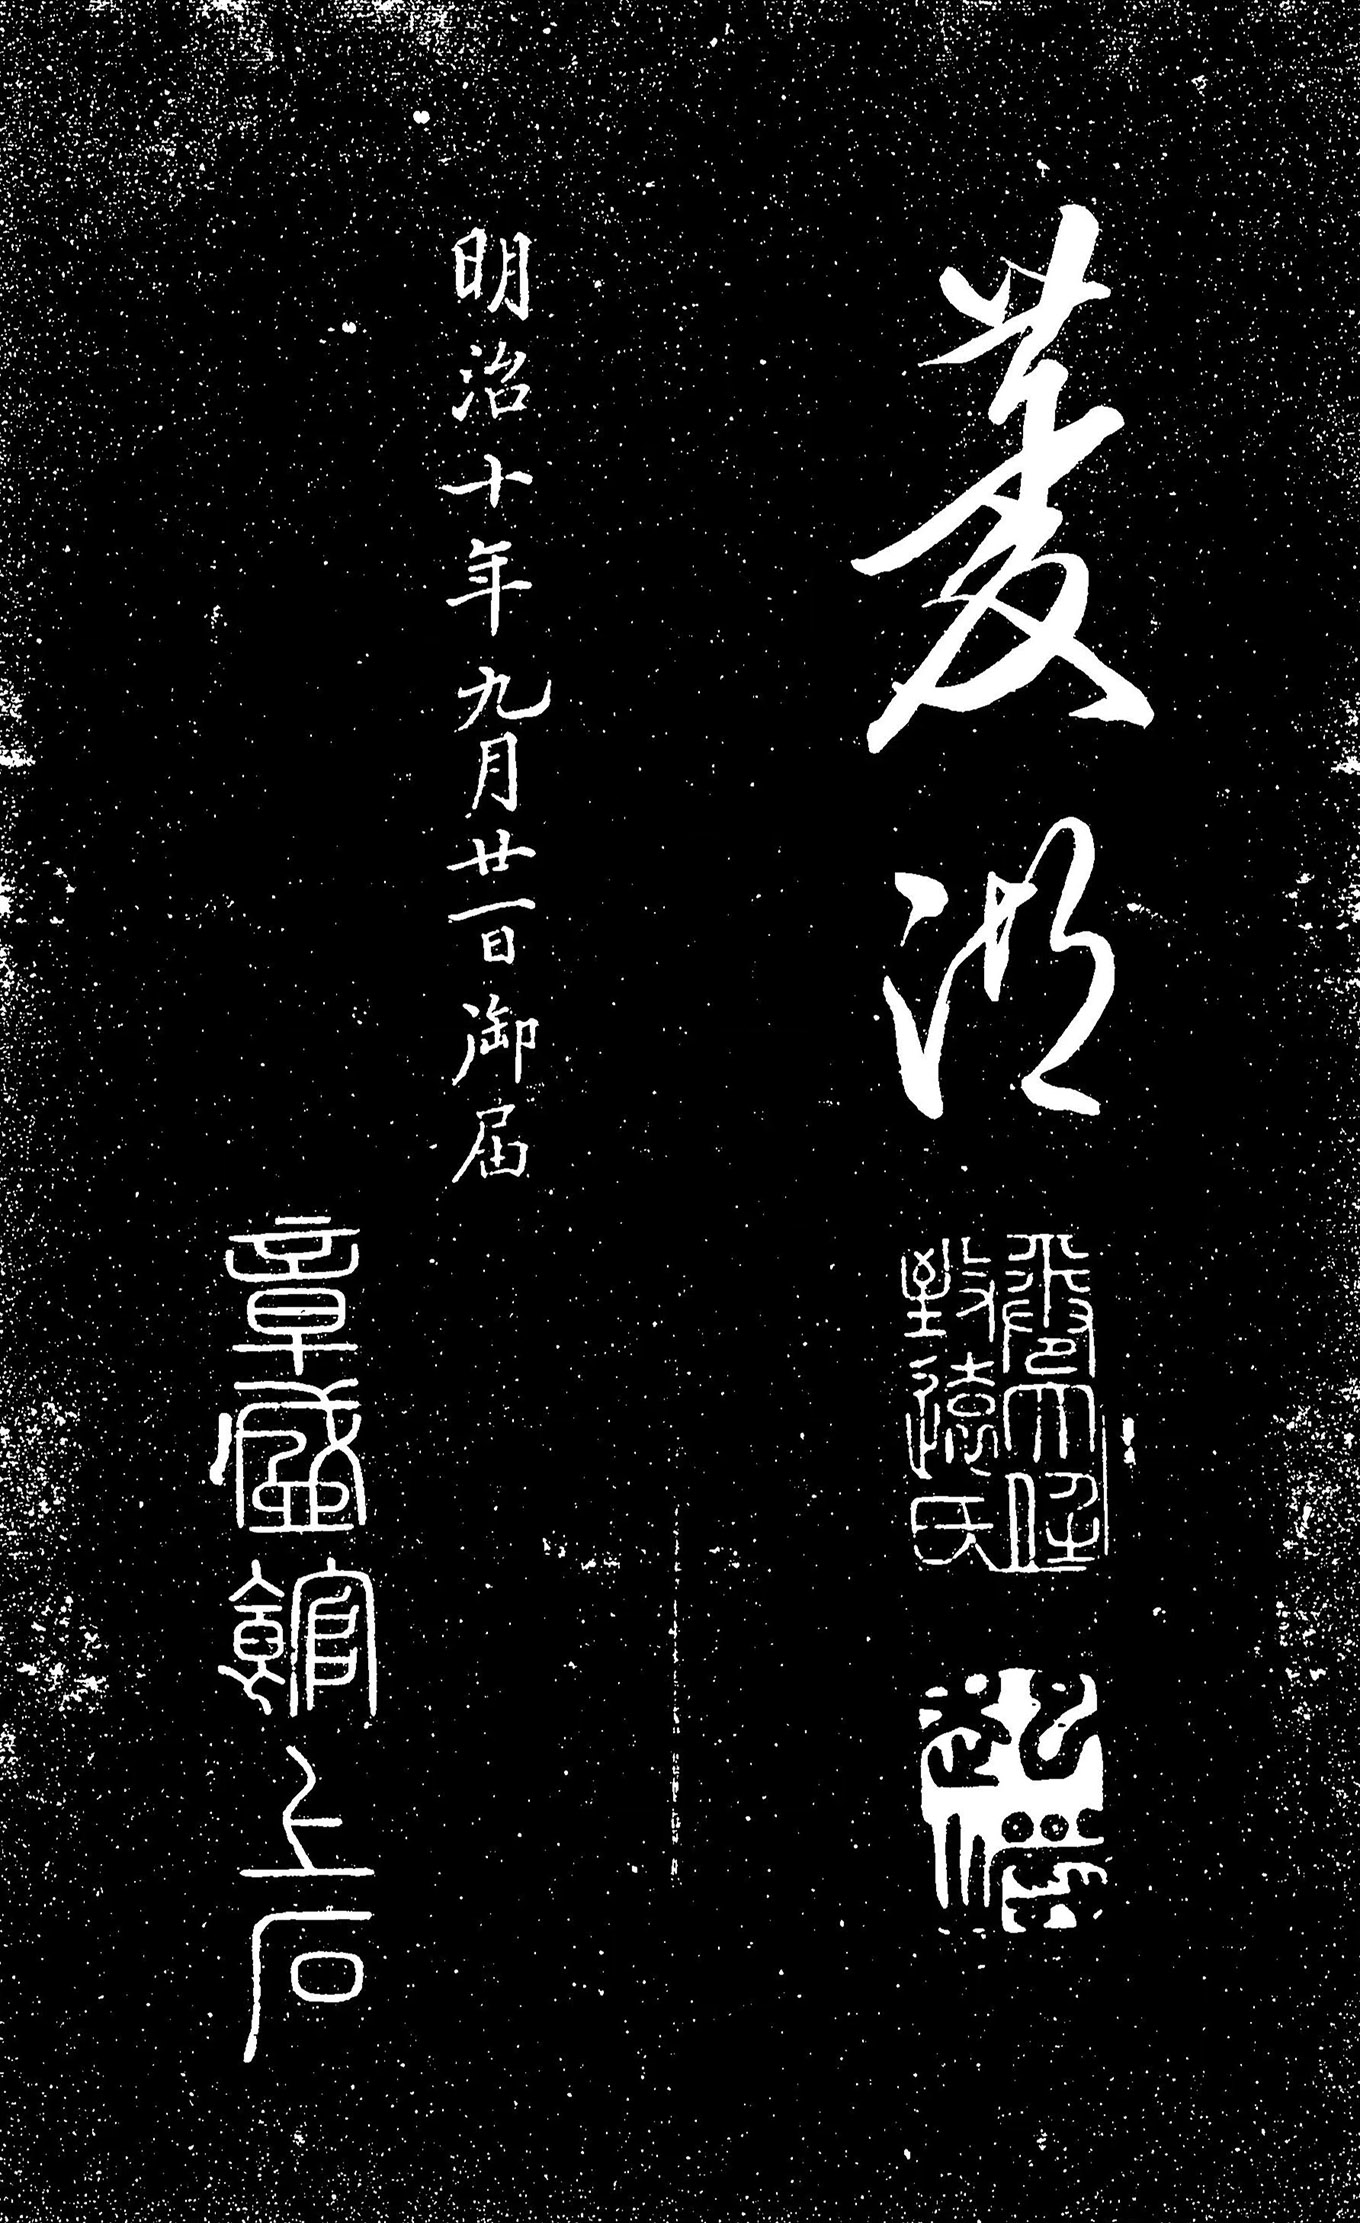 菱湖
明治十年九月廿一日御届
章盛館上石